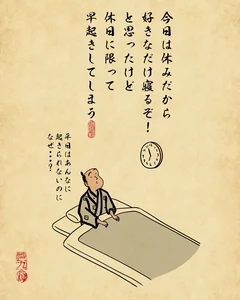 今日は休みだから
好きなだけ寝るぞ！
と思ったけど
休日に限って
早起きしてしまう
平日はあんなに
起きられないのに
なぜ・・・？